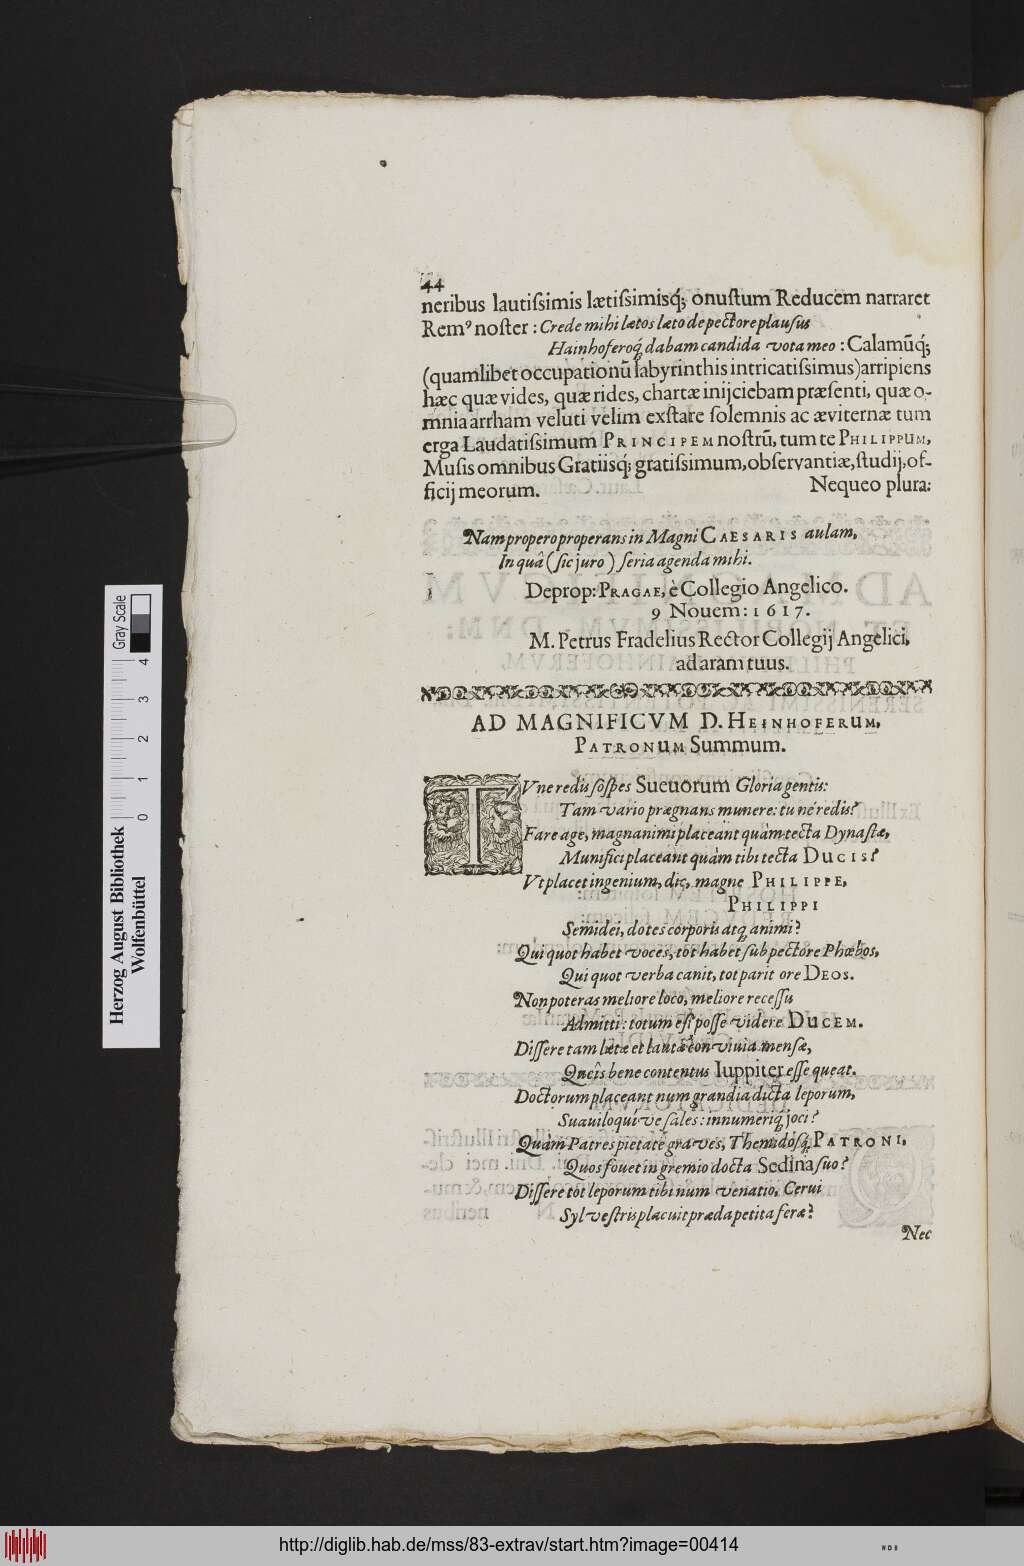 44
neribus lautiſsimis lætiſsimisq́; onuſtum Reducem narraret
Remꝰ noſter : Crede mihi lætos læto de pectore plauſus
Hainhoferoq́ dabam candida vota meo : Calamũq́;
(quamlibet occupationũ labyrinthis intricatiſsimus) arripiens
hæc quæ vides, quæ rides, chartæ inijciebam præſenti, quæ o-
mnia arrham veluti velim exſtare ſolemnis ac æviternæ tum
erga Laudatiſsimum PRINCIPEM noſtrũ, tum te PHILIPPUM,
Muſis omnibus Gratiisq́; gratiſsimum, obſervantiæ, ſtudij, of-
ficij meorum. Nequeo plura:
Nam propero properans in Magni CAESARIS aulam,
In quâ (ſic juro) ſeria agenda mihi.
Deprop: PRAGAE, è Collegio Angelico.
9 Novem: 1617.
M. Petrus Fradelius Rector Collegij Angelici,
ad aram tuus.
AD MAGNIFICVM D. HEINHOFERUM,
PATRONUM Summum.
TVne redis ſoſpes Sueuorum Gloria gentis:
Tam vario prægnans munere: tu ne redis?
Fare age, magnanimi placeant quàm tecta Dynaſtæ,
Munifici placeant quàm tibi tecta DUCIS?
Vt placet ingenium, dic, magne PHILIPPE,
PHILIPPI
Semidei, dotes corporis atq́ animi?
Qui quot habet voces, tot habet ſub pectore Phœbos,
Qui quot verba canit, tot parit ore DEOS.
Non poteras meliore loco, meliore receſſu
Admitti: totum eſt poſſe videre DUCEM.
Diſſere tam lætæ et lautæ convivia menſæ,
Queîs bene contentus Iuppiter eſſe queat.
Doctorum placeant num grandia dicta leporum,
Suaviloquive ſales: innumeriq́ joci?
Quàm Patres pietate graves, Themidosq́ PATRONI,
Quos fovet in gremio docta Sedina ſuo?
Diſſere tot leporum tibi num venatio, Cervi
Sylveſtris placuit præda petita feræ?
Nec
Herzog August Bibliothek
Wolfenbüttel
Gray Scale
0 1 2 3 4
http://diglib.hab.de/mss/83-extrav/start.htm?image=00414